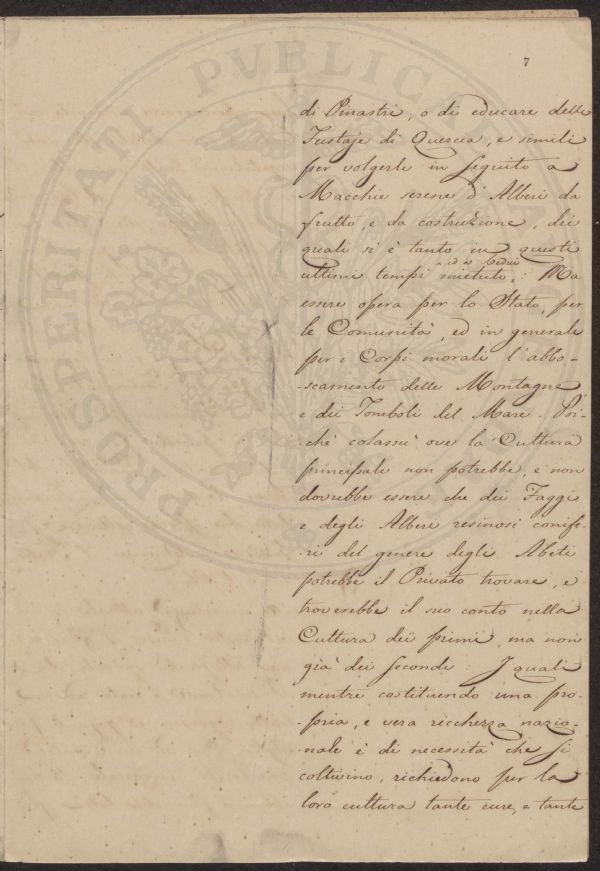 7
di Pinastri, o di educare delle
Fustaje di Quercia, e simili
per volgerle in seguito a
Macchie serene d'Alberi da
frutto, e da costruzione, dei
quali si è tanto in questi
ultimi tempi mietuto: Ma
essere opera per lo Stato, per
le Comunità, ed in generale
per i Corpi morali l'abbo-
-scamento delle Montagne
e dei Tomboli del Mare. Poi-
chè colassù ove la Cultura
principale non potrebbe, e non
dovrebbe essere che dei Faggi
e degli Alberi resinosi conife-
-ri del genere degli Abeti
potrebbe il Privato trovare, e
troverebbe il suo conto nella
Cultura dei primi, ma non
già dei secondi: I quali
mentre costituendo una pro-
-pria, e vera ricchezza nazio-
-nale è di necessità che si
coltivino, richiedono per la
loro cultura tante cure, e tante
PROSPERITATI PUBLICAE